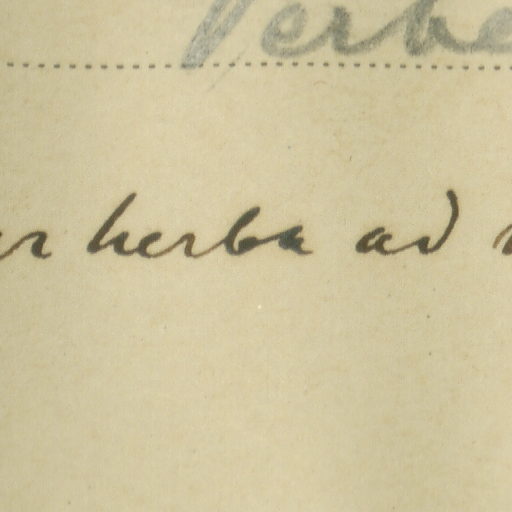 Verbe
er herba ad